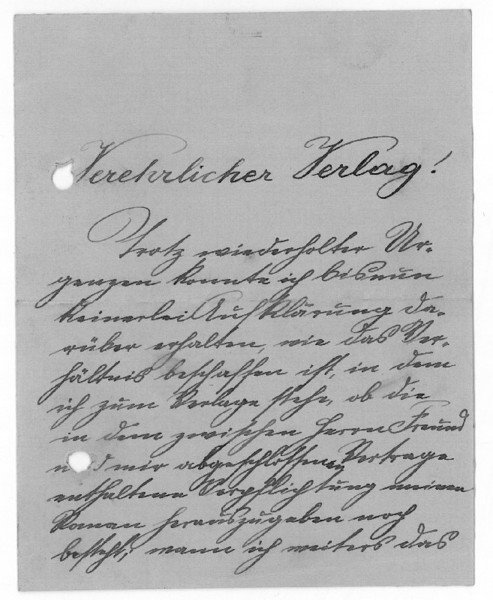 Verehrlicher Verlag!
Trotz wiederholter Ur-
genzen konnte ich bis nun
keinerlei Aufklärung da-
rüber erhalten, wie das Ver-
hältnis beschaffen ist, in dem
ich zum Verlage stehe, ob die
in dem zwischen Herrn Freund
und mir abgeschlossenen Vertrage
enthaltene Verpflichtung meinen
Roman herauszugeben noch
besteht; wann ich weiters das